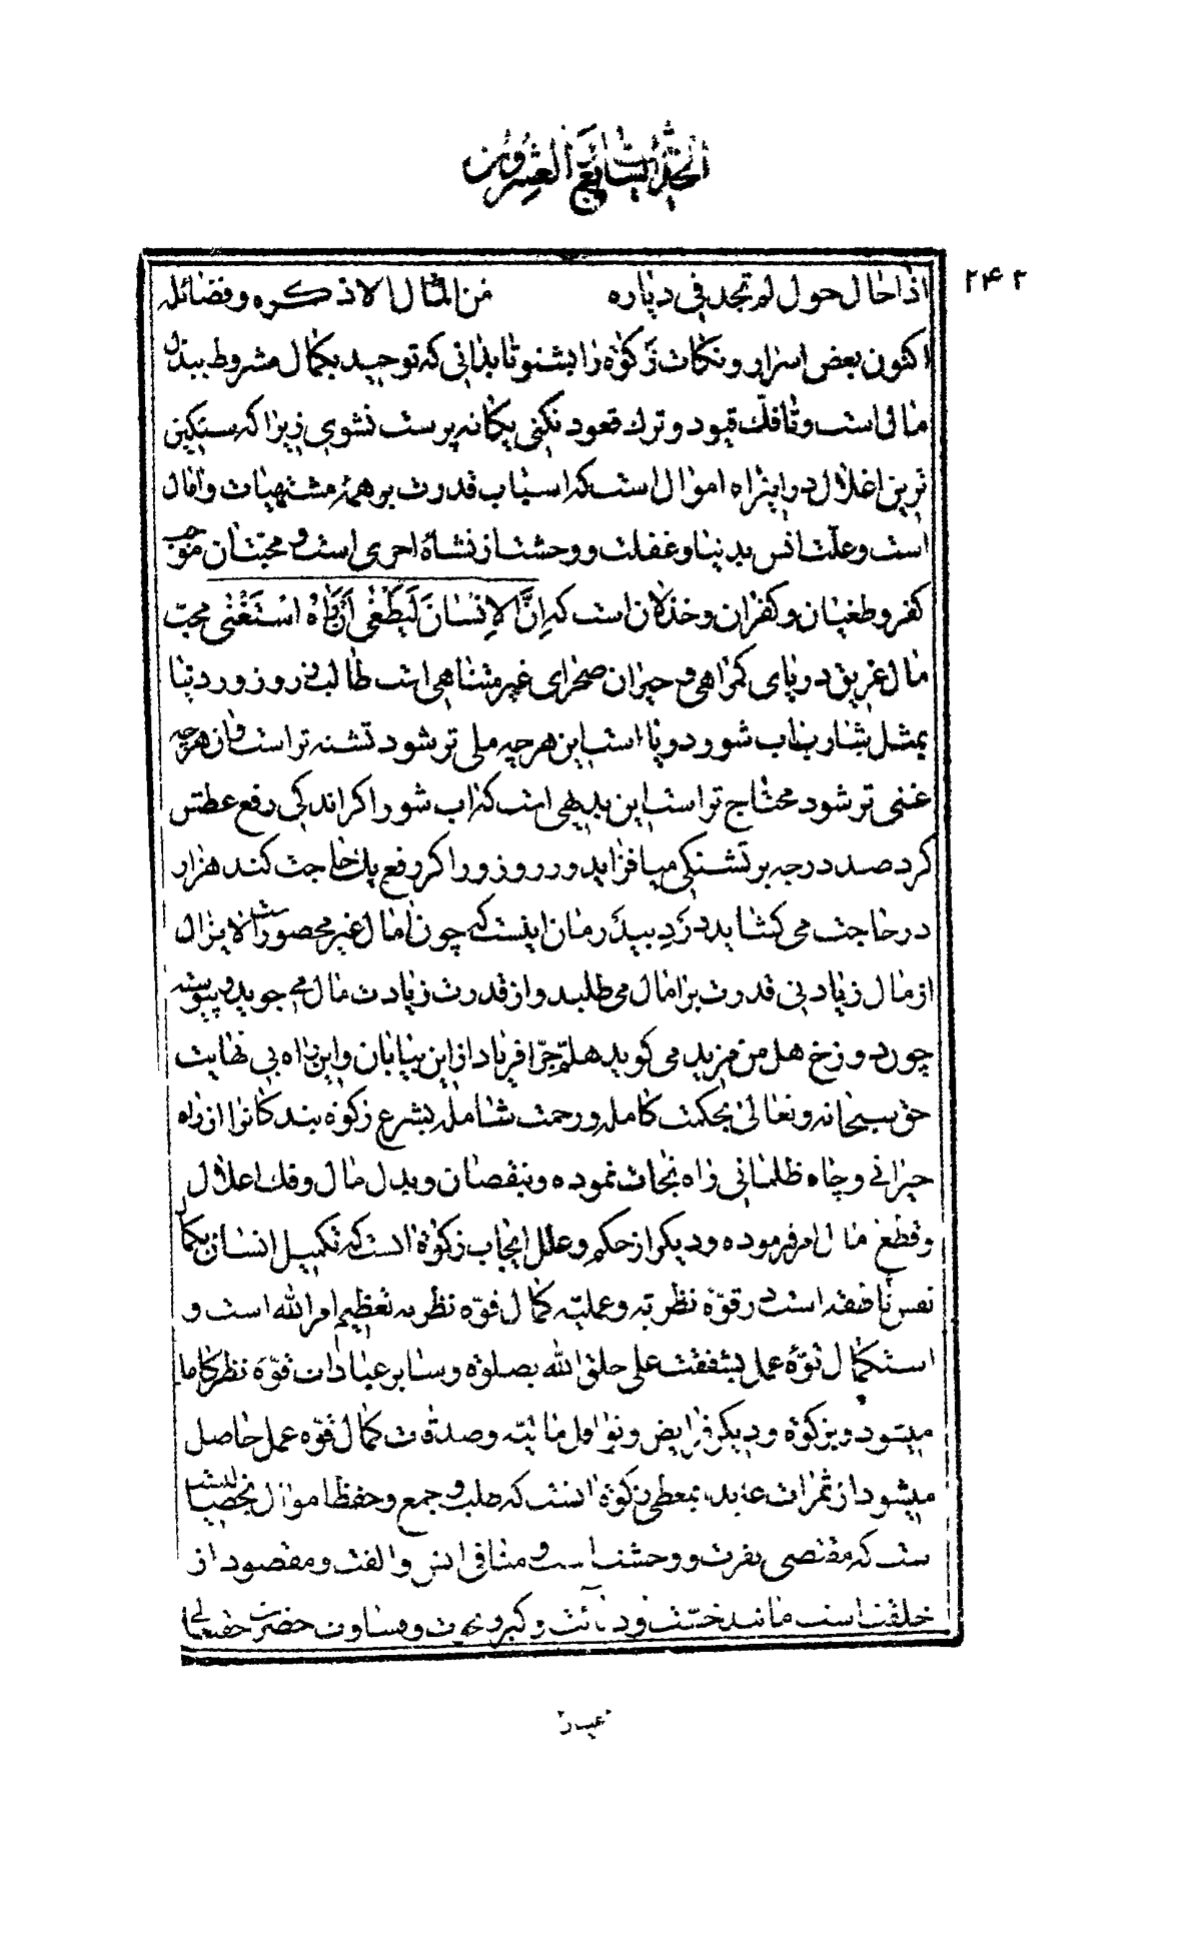 الحدیث السابع العشرون
۲۴۲
اذا حال حول لم تجد فی دیاره من المال الا ذکره و فضائله
اکنون بعض اسرار و نکات زکوة را بشنو تا بدانی که توحید بکمال مشروط ببذل
مالی است و تا فك قیود و ترك قعود نکنی یکانه پرست نشوی زیرا که سنکین
ترین اغلال در اینراه اموال است که اسباب قدرت بر همهٔ مشتهیات و امال
است و علت انس بدنیا و غفلت و وحشت از نشاهٔ اخری است و محبتان موجب
کفر و طغیان و کفران و خذلان است که اِنَّ الاِنْسانَ لَیَطْغیٰ اَنْ رَاٰهُ اسْتَغْنیٰ محبّ
مال غریق دریای کمراهی و حیران صحرای غیر متناهی است طالب زر و زور دنیا
بمثل شارب اب شور دریا است این هرچه ملی تر شود تشنه تر است و ان هرچه
غنی تر شود محتاج تر است این بدیهی است که اب شور اکر اندکی رفع عطش
کرد صد درجه بر تشنکی میافزاید و زر و زور اکر رفع یك حاجت کند هزار
در حاجت می کشاید درد بیدرمان اینست که چون امال غیر محصور است لا یزال
از مال زیادتی قدرت بر امال می طلبد و از قدرت زیادت مال می جوید و پیوسته
چون دوزخ هل من مزید می کوید هلمّ جرّا فریاد از این بیابان و این راه بی نهایت
حق سبحانه و تعالی بحکمت کامله و رحمت شامله بشرع زکوة بندکانرا از راه
حیرانی و چاه ظلمانی راه نجات نموده و بنقصان و بذل مال و فك اغلال
و قطع مال امر فرموده و دیکر از حکم و علل ایجاب زکوة انست که تکمیل انسان بکمال
نفس ناطقه است در قوّهٔ نظریّه و عملیّه کمال قوّه نظریه تعظیم امر الله است و
استکمال قوّهٔ عمل بشفقت علی خلق الله بصلوة و سایر عبادات قوّهٔ نظر کامل
میشود و بزکوة و دیکر فرایض و نوافل مالیّه و صدقات کمال قوّه عمل حاصل
میشود از ثمرات عایده بمعطی زکوة انست که طلب و جمع و حفظ اموال
ست که مقتضی نفرت و وحشت است و منافی انس و الفت و مقصود از
خلقت است مانند خسّت و دنائت و کبر و و قساوت حضرت حقتعالی